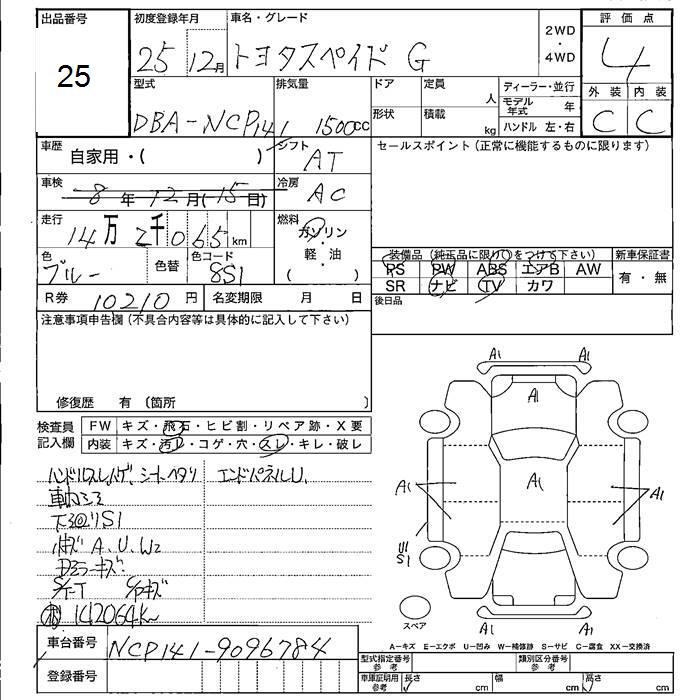 出品番号
25
初度登録年月
25 12月
車名・グレード
トヨタスペイド G
2WD
・
4WD
評価点
4
外装 内装
C C
型式
DBA-NCP141
排気量
1500cc
ドア
形状
定員
人
積載
kg
ディーラー・並行
モデル年式 年
ハンドル 左・右
車歴
自家用・( )
シフト
AT
セールスポイント(正常に機能するものに限ります)
車検
8年12月(15日)
冷房
AC
走行
14万2千065km
燃料
ガソリン
・
軽油
( )
色
ブルー
色替
色コード
8S1
R券 10210円
名変期限 月 日
装備品(純正品に限り○をつけて下さい)
新車保証書
PS PW ABS エアB AW
SR ナビ TV カワ
有・無
後日品
注意事項申告欄(不具合内容等は具体的に記入して下さい)
修復歴 有 (箇所 )
検査員
記入欄
FW キズ・飛石・ヒビ割・リペア跡・X要
内装 キズ・汚レ・コゲ・穴・スレ・キレ・破レ
ハンドルスレハゲ、シートヘタリ
エンドパネルU、
S1
キズ A、U、W2
ミラーキズ
142064km
車台番号 NCP141-9096784
登録番号
A1 A1
A1
A1
A1 A1
U1
S1
A1 A1
スペア
A-キズ E-エクボ U-凹み W-補修跡 S-サビ C-腐食 XX-交換済
型式指定番号
参考
類別区分番号
参考
車庫証明用
参考
長さ cm 幅 cm 高さ cm